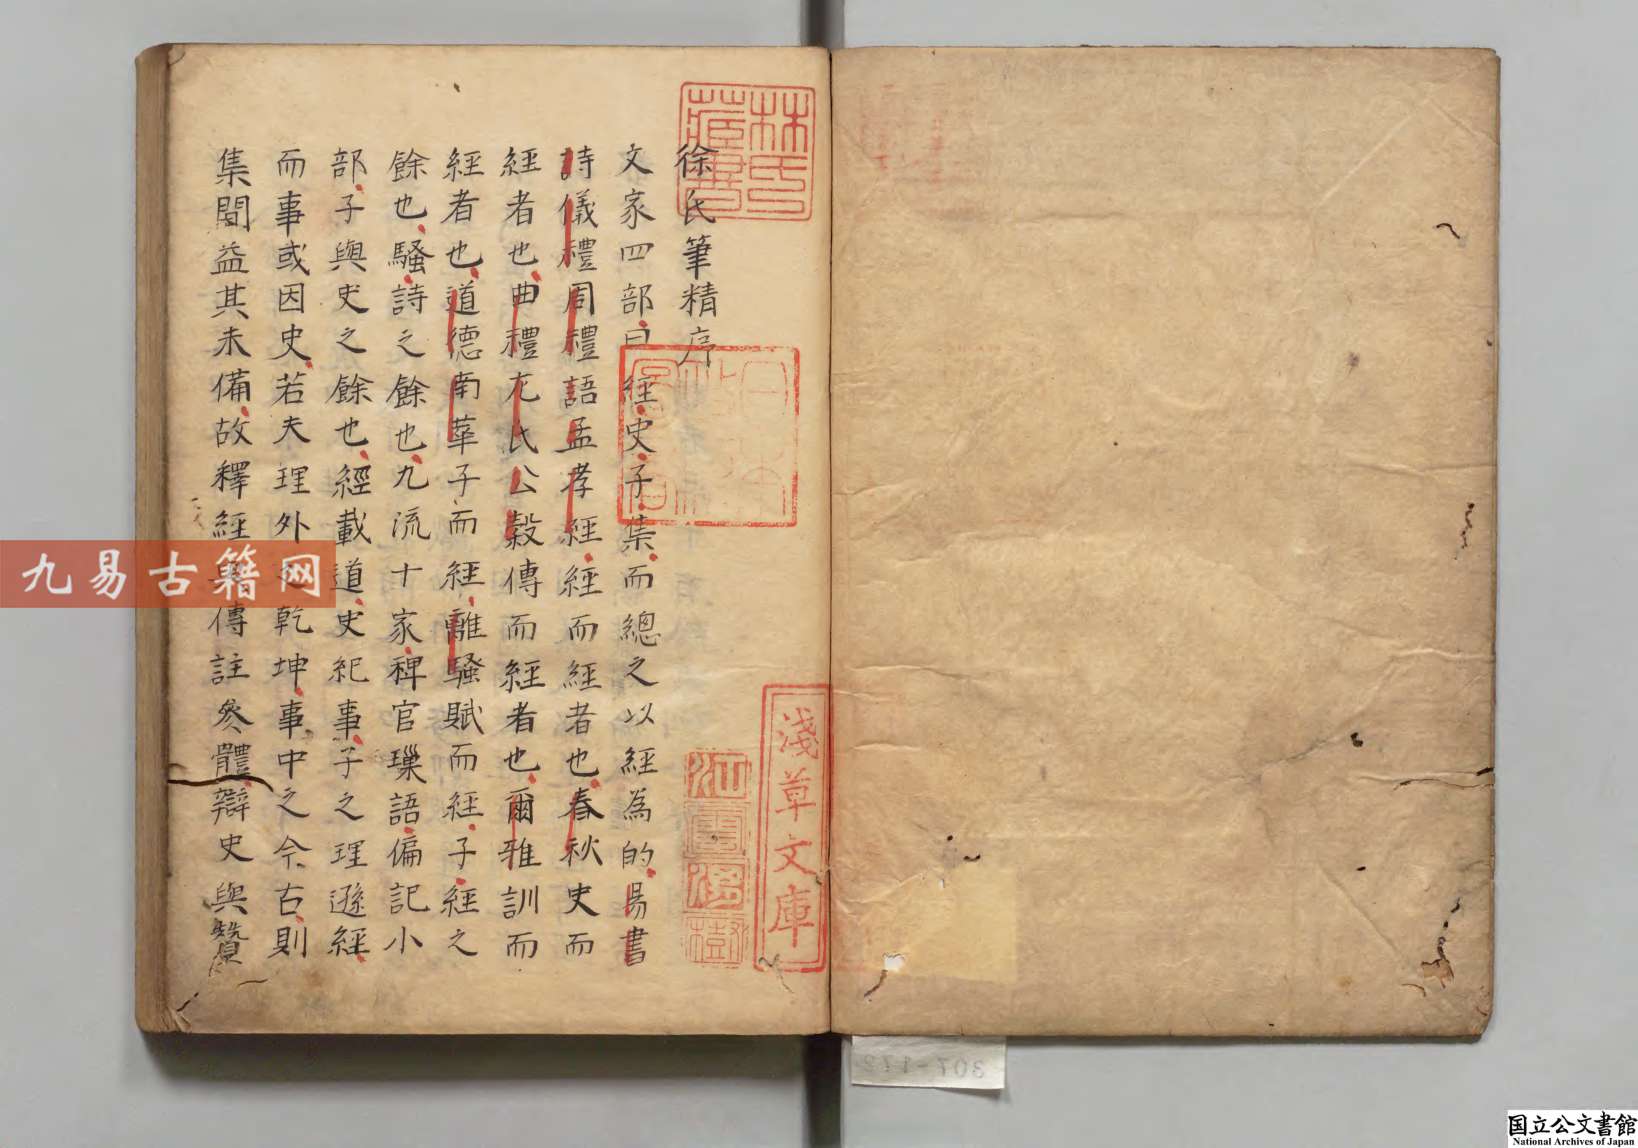 徐氏筆精序
文家四部曰經史子集而總之以經為的易書
詩儀禮周禮語孟孝經經而經者也春秋史而
經者也曲禮左氏公穀傳而經者也爾雅訓而
經者也道德南華子而經離騷賦而經子經之
餘也騷詩之餘也九流十家稗官璅語偏記小
部子與史之餘也經載道史紀事子之理遜經
而事或因史若夫理外之乾坤事中之今古則
集閒益其未備故釋經與傳註參體辯史與
林氏藏書
日本政府圖書
淺草文庫
江雲渭樹
九易古籍网
307-172
国立公文書館
National Archives of Japan